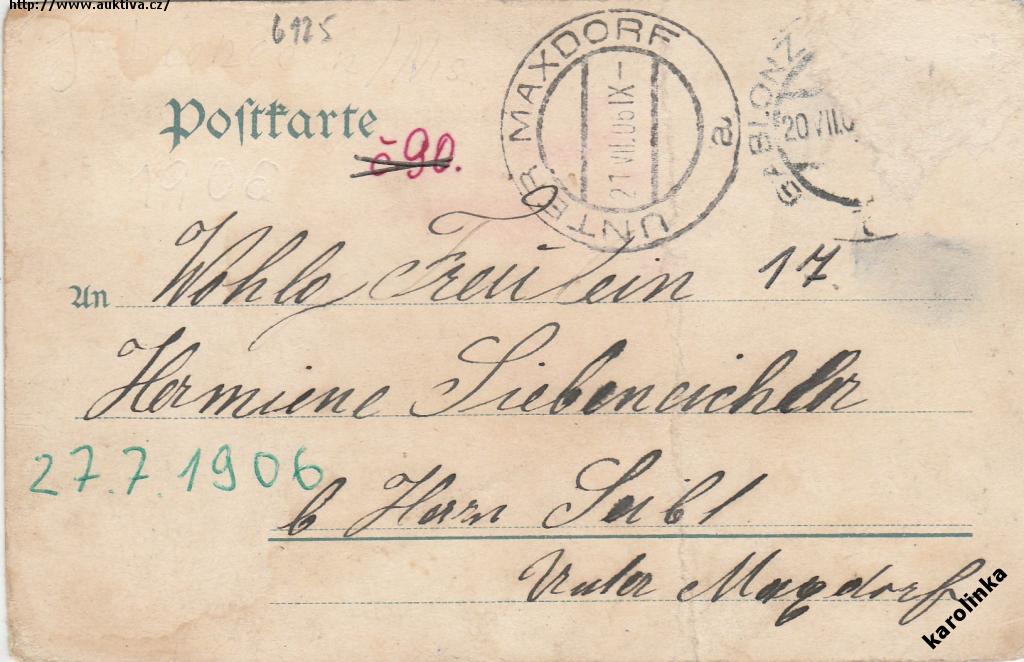 http://www.auktiva.cz/
6925
Postkarte
č 90.
1906
UNTER MAXDORF
21 VII.06 IX-
a
GABLONZ
20 VII.0
An Wohlg Freulein 17.
Hermiene Siebeneichler
27.7.1906
b Herrn Seibl
Unter Maxdorf
karolinka